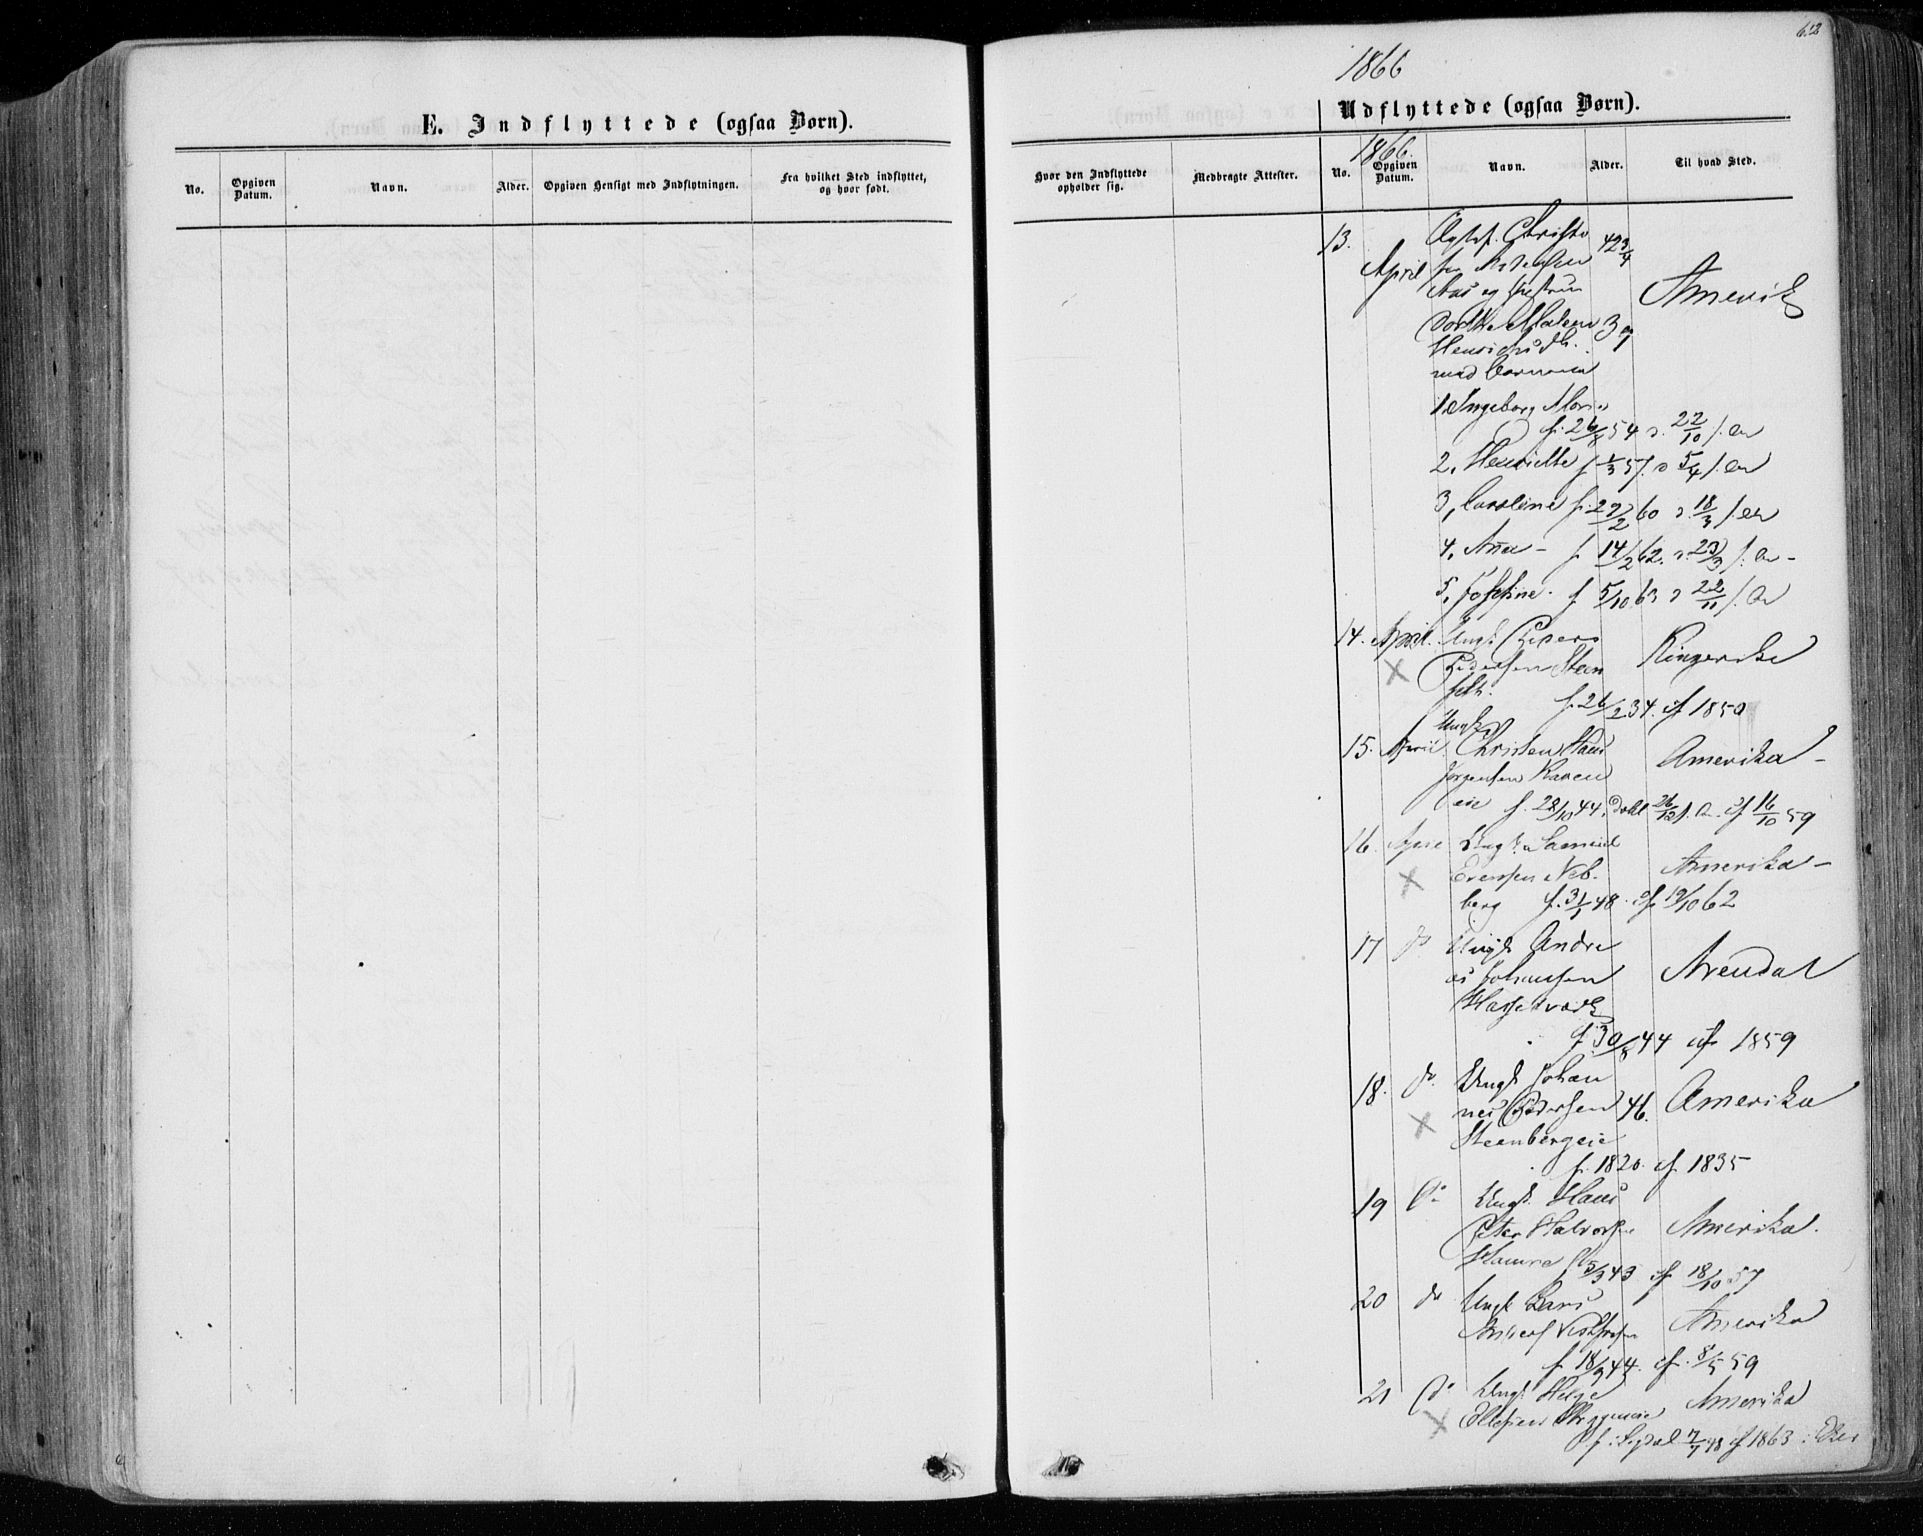 652
1866
E. Indflyttede (ogsaa Børn).
Udflyttede (ogsaa Børn).
1866.
No. Opgiven Datum. Navn. Alder. Opgiven Hensigt med Indflytningen. Fra hvilket Sted indflyttet, og hvor født.
Hvor den Indflyttede opholder sig. Medbragte Attester. No. Opgiven Datum. Navn. Alder. Til hvad Sted.
13. April Christo 42 3/4
Aas og Hustru Amerik
Dorthe Malene 39
Henrichsdtr.
med Børnene
1. Ingeborg Marie
f. 26/8 54 d. 22/10 s. A
2, Henriette f 1/3 57. d 5/4 s. A
3, Caroline f. 29/2 60 d. 18/3 s. A
4, Anna - f 14/2 62. d. 23/3 s. A -
5, Josefine. f 5/10 63 d 22/11 s. A
14. April. Ungk. Peder
Pedersen Steen Ringerike
feldt. f. 26/2 34. cf 1850
Ungk.
15. April. Christen Hans Amerika -
Jørgensen
eie f. 28/10 44. Døbt 26/12 s. A. cf 16/10 59
16. Ungk. Samuel
Evensen Neb- Amerika -
berg f. 31/1 48. cf 19/10 62
17 do Ungk Andre
as Johansen Arendal
Hassel værk
f 30/8 44 cf 1859
18. do. Ungk Johan
nes Pedersen 46. Amerika
Steenbergeie
f. 1820. cf. 1835
19 do Ungk. Hans
Peter Halvorsen Amerika.
f 5/3 43 cf 18/10 57
20 do Ungk Lars
Amerika
f. 18/9 44. cf. 8/5 59
21 do Ungk Helge Amerika
Ellefsen
f. i Sigdal 7/7 48 cf 1863 i Eker